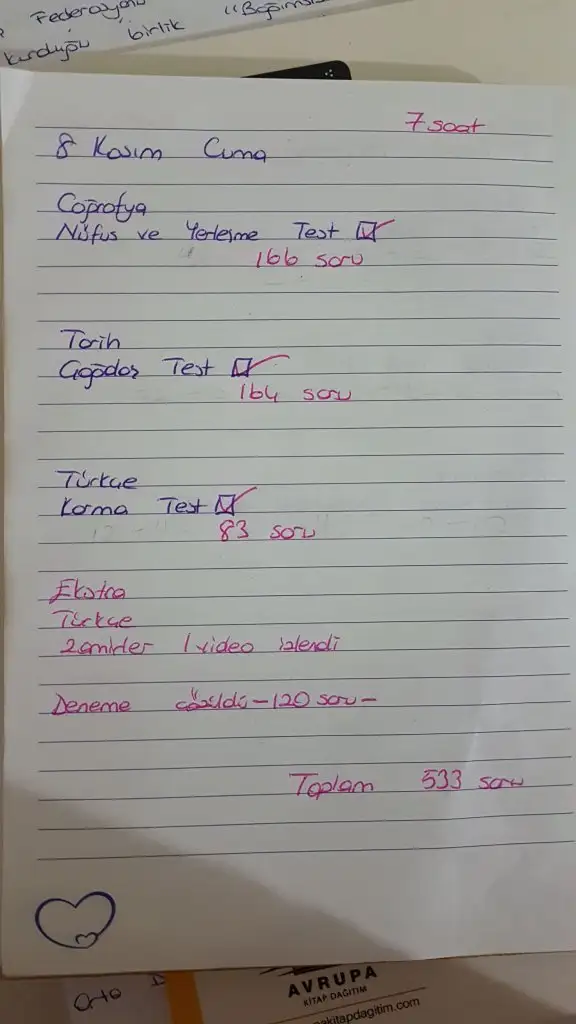 Federasyonu
kurduğu birlik "Bağımsı
7 saat
8 Kasım Cuma
Coğrafya
Nüfus ve Yerleşme Test
166 soru
Tarih
Çağdaş Test
164 soru
Türkçe
Karma Test
83 soru
Ekstra
Türkçe
Zamirler 1 video izlendi
Deneme çözüldü - 120 soru -
Toplam 533 soru
Orta
AVRUPA
KİTAP DAĞITIM
akitapdagitim.com